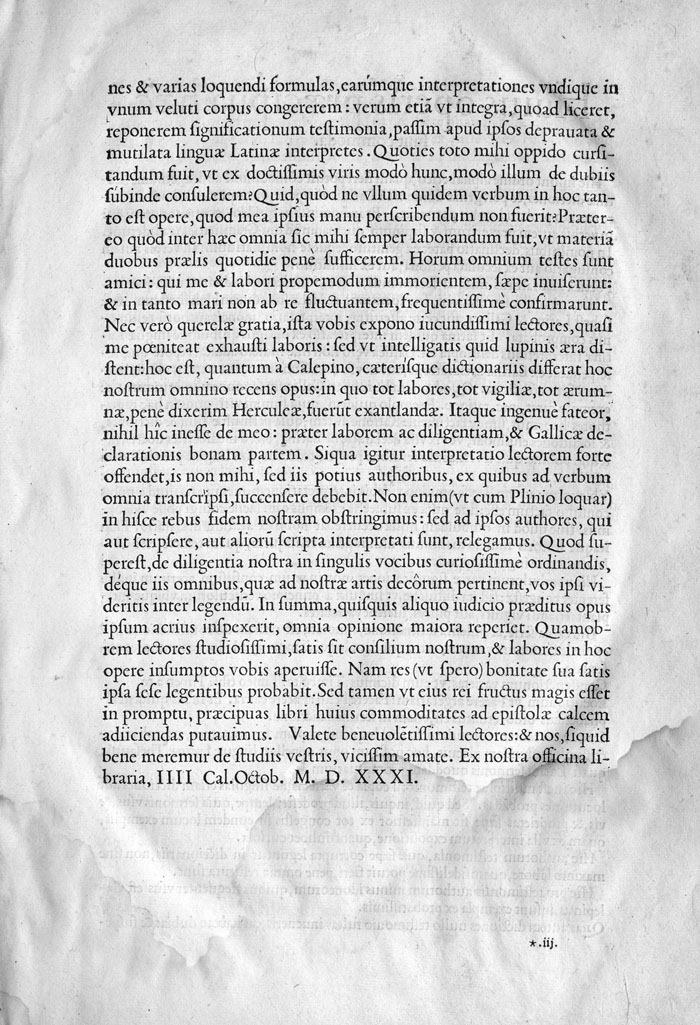 nes & varias loquendi formulas,earúmque interpretationes vndique in
vnum veluti corpus congererem : verum etiã vt integra,quoad liceret,
reponerem significationum testimonia,passim apud ipsos deprauata &
mutilata linguæ Latinæ interpretes . Quoties toto mihi oppido cursi-
tandum fuit, vt ex doctissimis viris modò hunc,modò illum de dubiis
súbinde consulerem?Quid,quòd ne vllum quidem verbum in hoc tan-
to est opere,quod mea ipsius manu perscribendum non fuerit?Præter-
eo quòd inter hæc omnia sic mihi semper laborandum fuit,vt materiã
duobus prælis quotidie penè sufficerem. Horum omnium testes sunt
amici : qui me & labori propemodum immorientem, sæpe inuiserunt:
& in tanto mari non ab re fluctuantem,frequentissimè confirmarunt.
Nec verò querelæ gratia,ista vobis expono iucundissimi lectores,quasi
me pœniteat exhausti laboris : sed vt intelligatis quid lupinis æra di-
stent:hoc est, quantum à Calepino, cæterísque dictionariis differat hoc
nostrum omnino recens opus:in quo tot labores,tot vigiliæ,tot ærum-
næ,penè dixerim Herculeæ,fuerũt exantlandæ. Itaque ingenuè fateor,
nihil hîc inesse de meo : præter laborem ac diligentiam,& Gallicæ de-
clarationis bonam partem . Siqua igitur interpretatio lectorem forte
offendet,is non mihi, sed iis potius authoribus, ex quibus ad verbum
omnia transcripsi,succensere debebit.Non enim(vt cum Plinio loquar)
in hisce rebus fidem nostram obstringimus : sed ad ipsos authores, qui
aut scripsere, aut aliorũ scripta interpretati sunt, relegamus. Quod su-
perest, de diligentia nostra in singulis vocibus curiosissimè ordinandis,
déque iis omnibus,quæ ad nostræ artis decôrum pertinent,vos ipsi vi-
deritis inter legendũ. In summa,quisquis aliquo iudicio præditus opus
ipsum acrius inspexerit, omnia opinione maiora reperiet. Quamob-
rem lectores studiosissimi,satis sit consilium nostrum,& labores in hoc
opere insumptos vobis aperuisse. Nam res (vt spero) bonitate sua satis
ipsa sese legentibus probabit.Sed tamen vt eius rei fructus magis esset
in promptu, præcipuas libri huius commoditates ad epistolæ calcem
adiiciendas putauimus. Valete beneuolẽtissimi lectores:& nos,siquid
bene meremur de studiis vestris, vicissim amate. Ex nostra officina li-
braria, IIII Cal.Octob. M. D. XXXI.
*.iij.